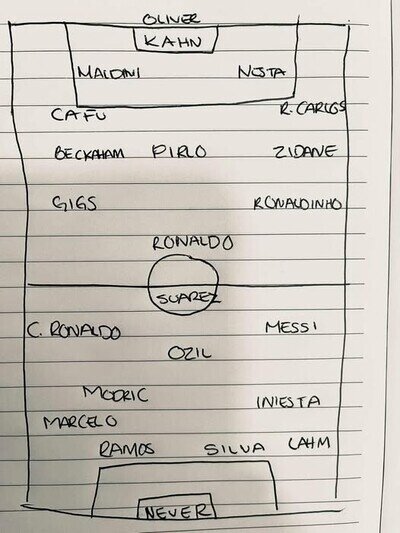 OLIVER
KAHN
MALDINI NESTA
CAFU R. CARLOS
BECKAHAM PIRLO ZIDANE
GIGS RONALDINHO
RONALDO
SUAREZ
C. RONALDO MESSI
OZIL
MODRIC INIESTA
MARCELO
RAMOS SILVA LAHM
NEVER